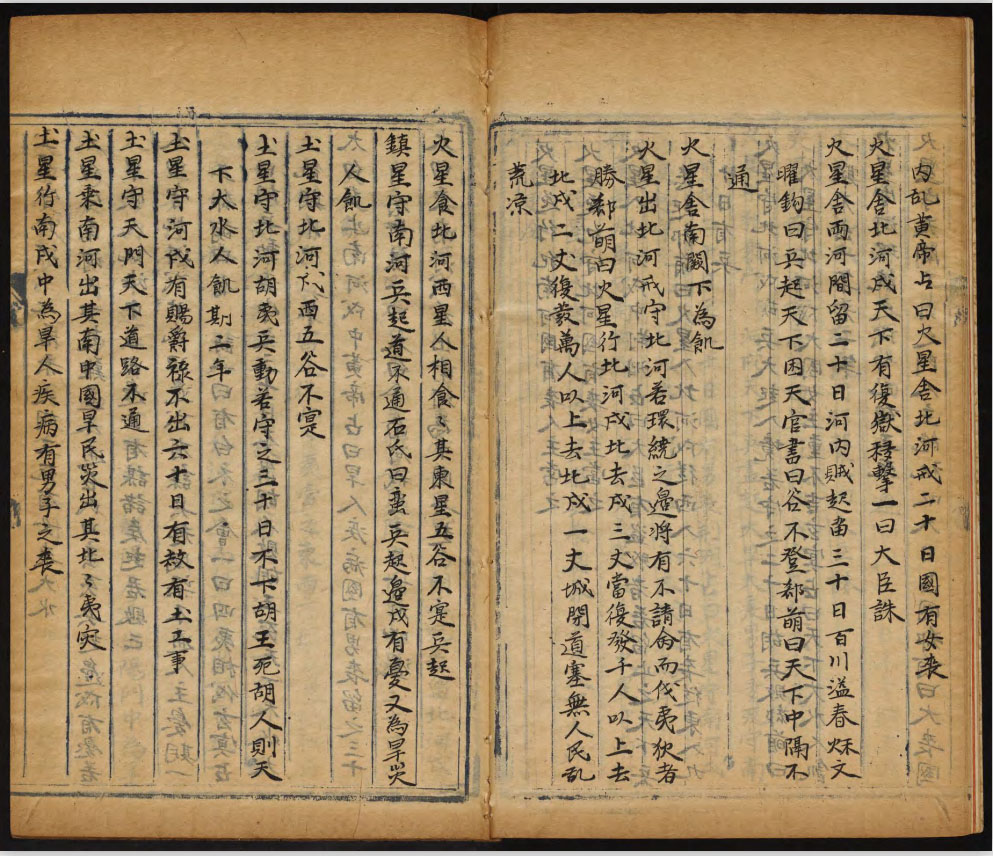 內乱黄帝占曰火星舍北河戒二十日國有女丧
火星舍北河戍天下有復嶽移擊一曰大臣誅
火星舍两河間留二十日河内賊起留三十日百川溢春秌文
曜鈎曰兵起天下困天官書曰谷不登郄萌曰天下中隔不
通
火星舍南闕下為飢
火星出北河戒守北河若環繞之邉將有不請命而伐夷狄者
勝郄萌曰火星行北河戍北去戍三丈當復發千人以上去
北戍二丈復發萬人以上去北戍一丈城閉道塞無人民乱
荒凉
火星食北河西星人相食〻其東星五谷不寔兵起
鎮星守南河兵起道不通石氏曰蛮兵起邉戍有憂又為旱災
人飢
土星守北河戍西五谷不寔
土星守北河胡夷兵動若守之三十日不下胡王死胡人則天
下大水人飢期二年
土星守河戍有賜爵祿不出六十日有赦有土工事
土星守天門天下道路不通
土星乘南河出其南中國旱民災出其北〻夷灾
土星行南戍中為旱人疾病有男子之丧